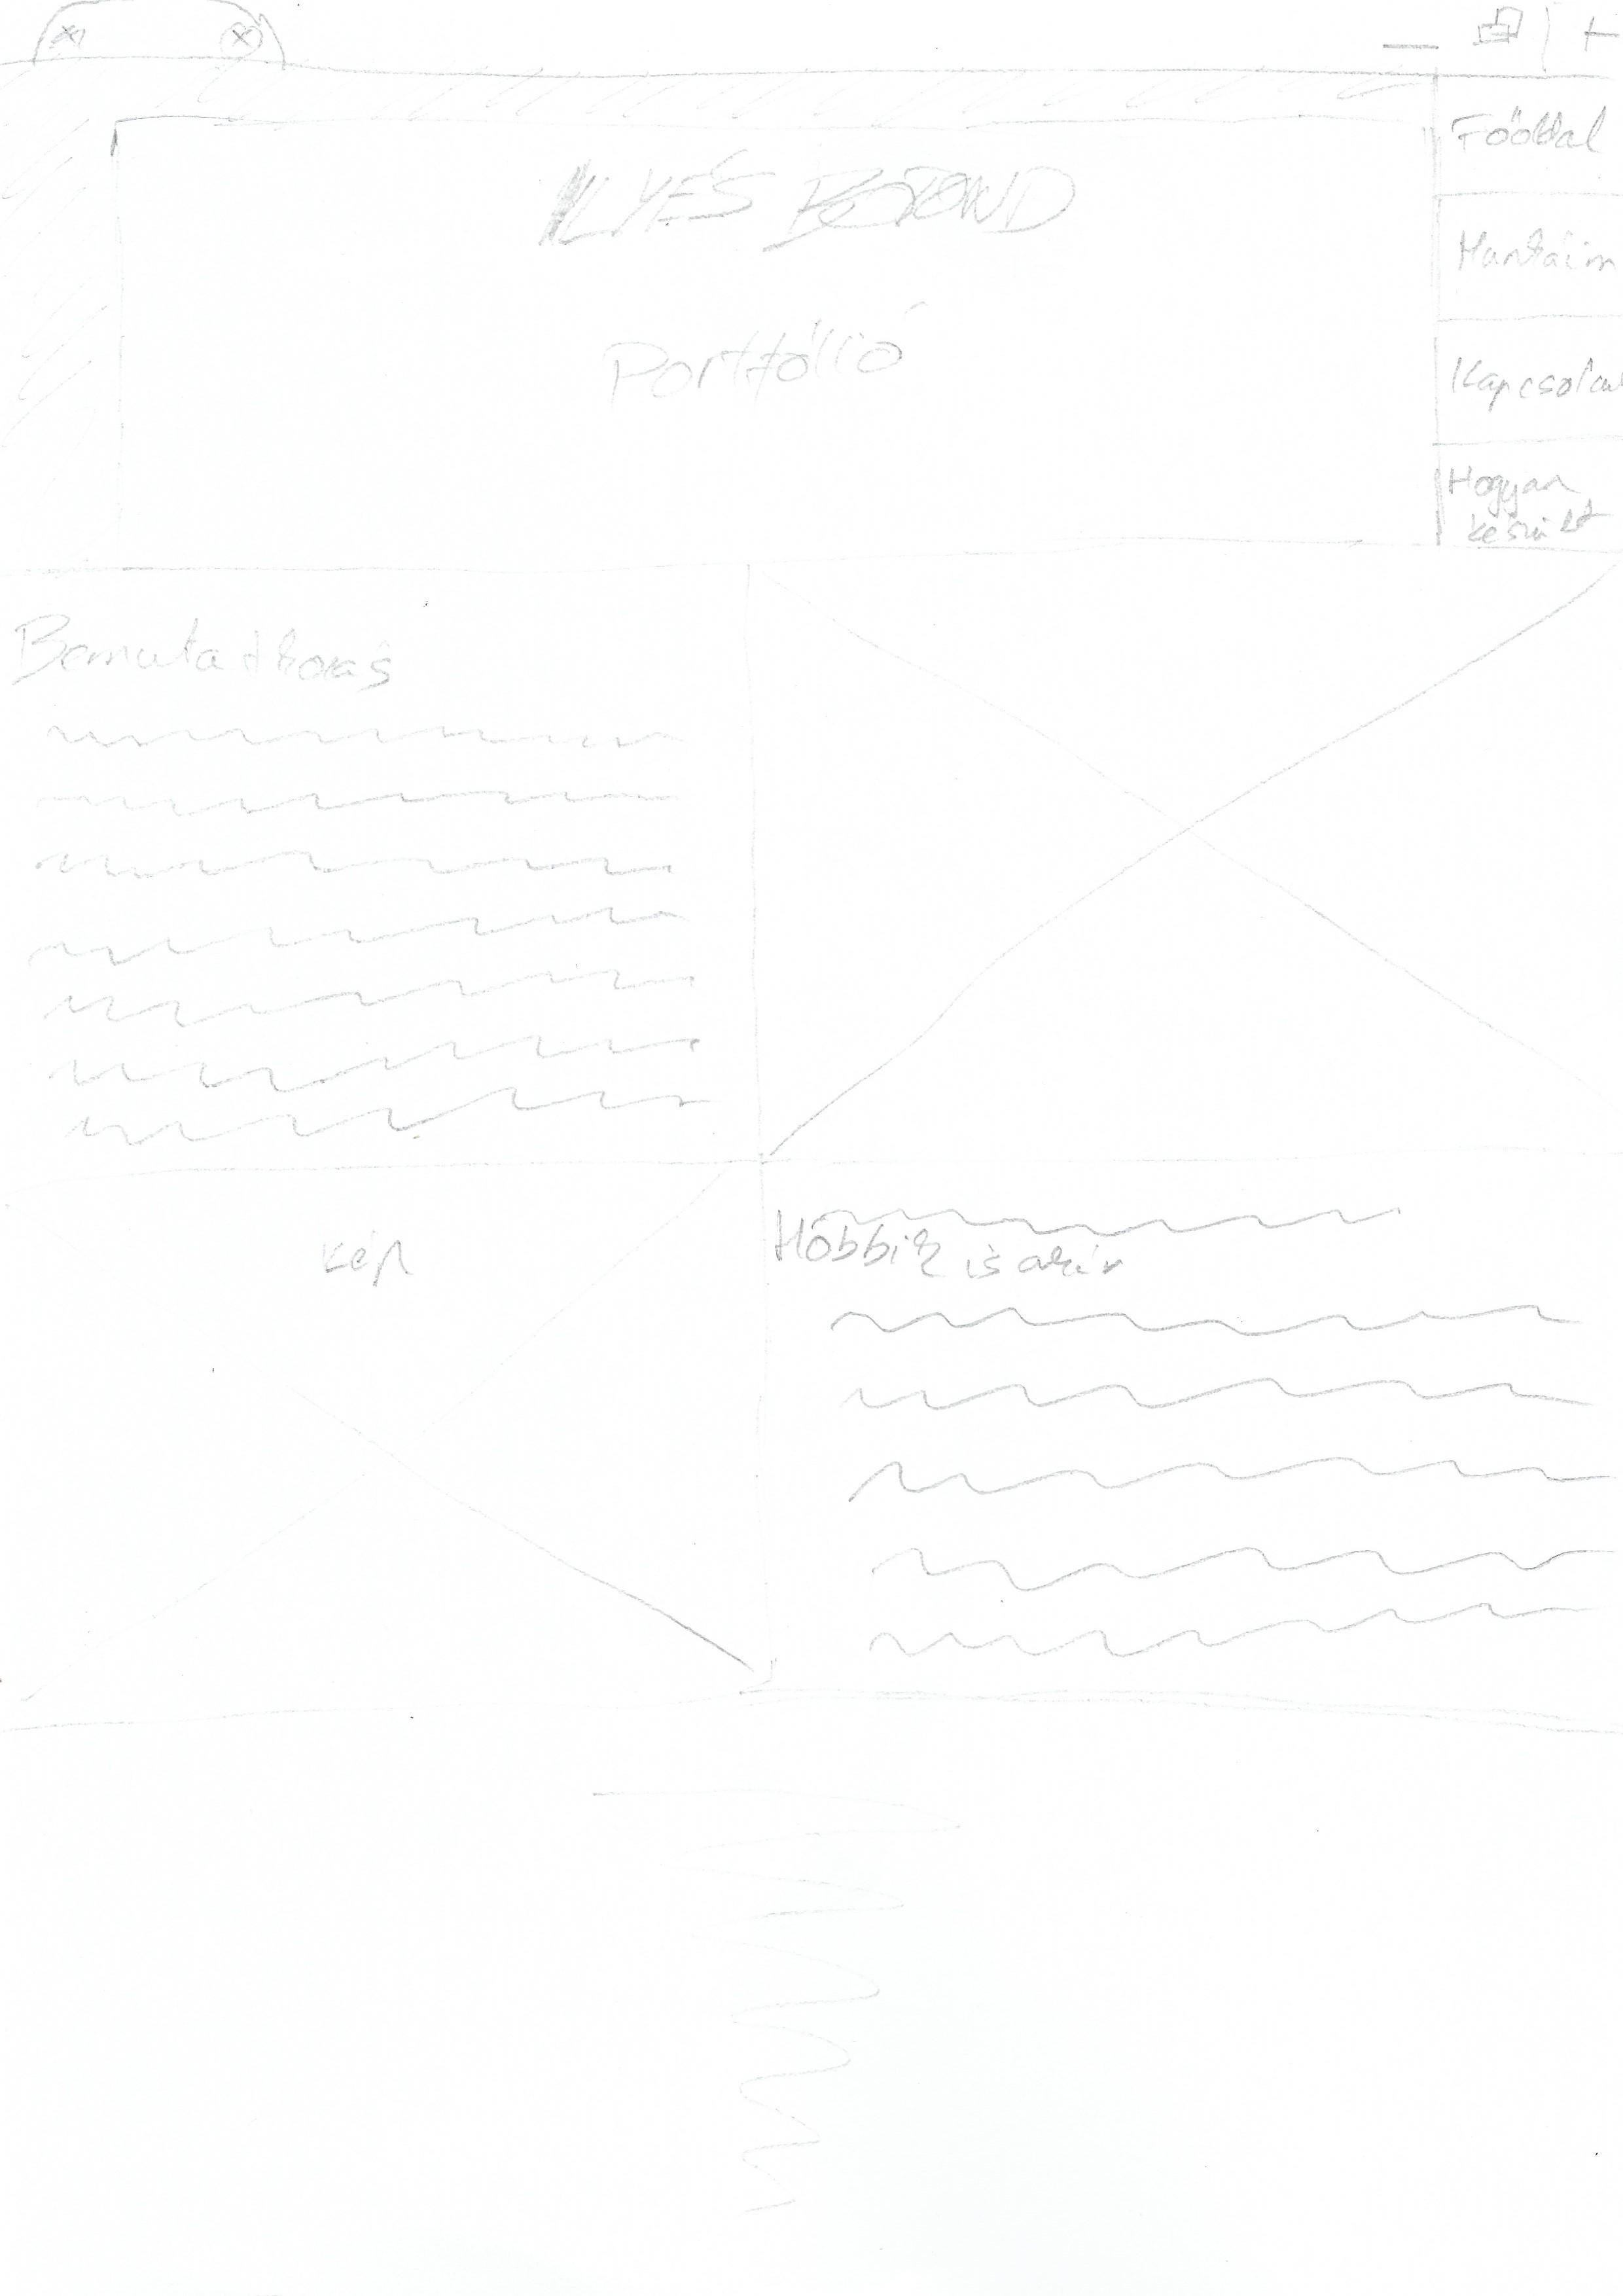 ILYÉS BOTOND
Portfólió
Főoldal
Munkáim
Kapcsolat
Hogyan
készült
Bemutatkozás
Kép
Hobbik is akár